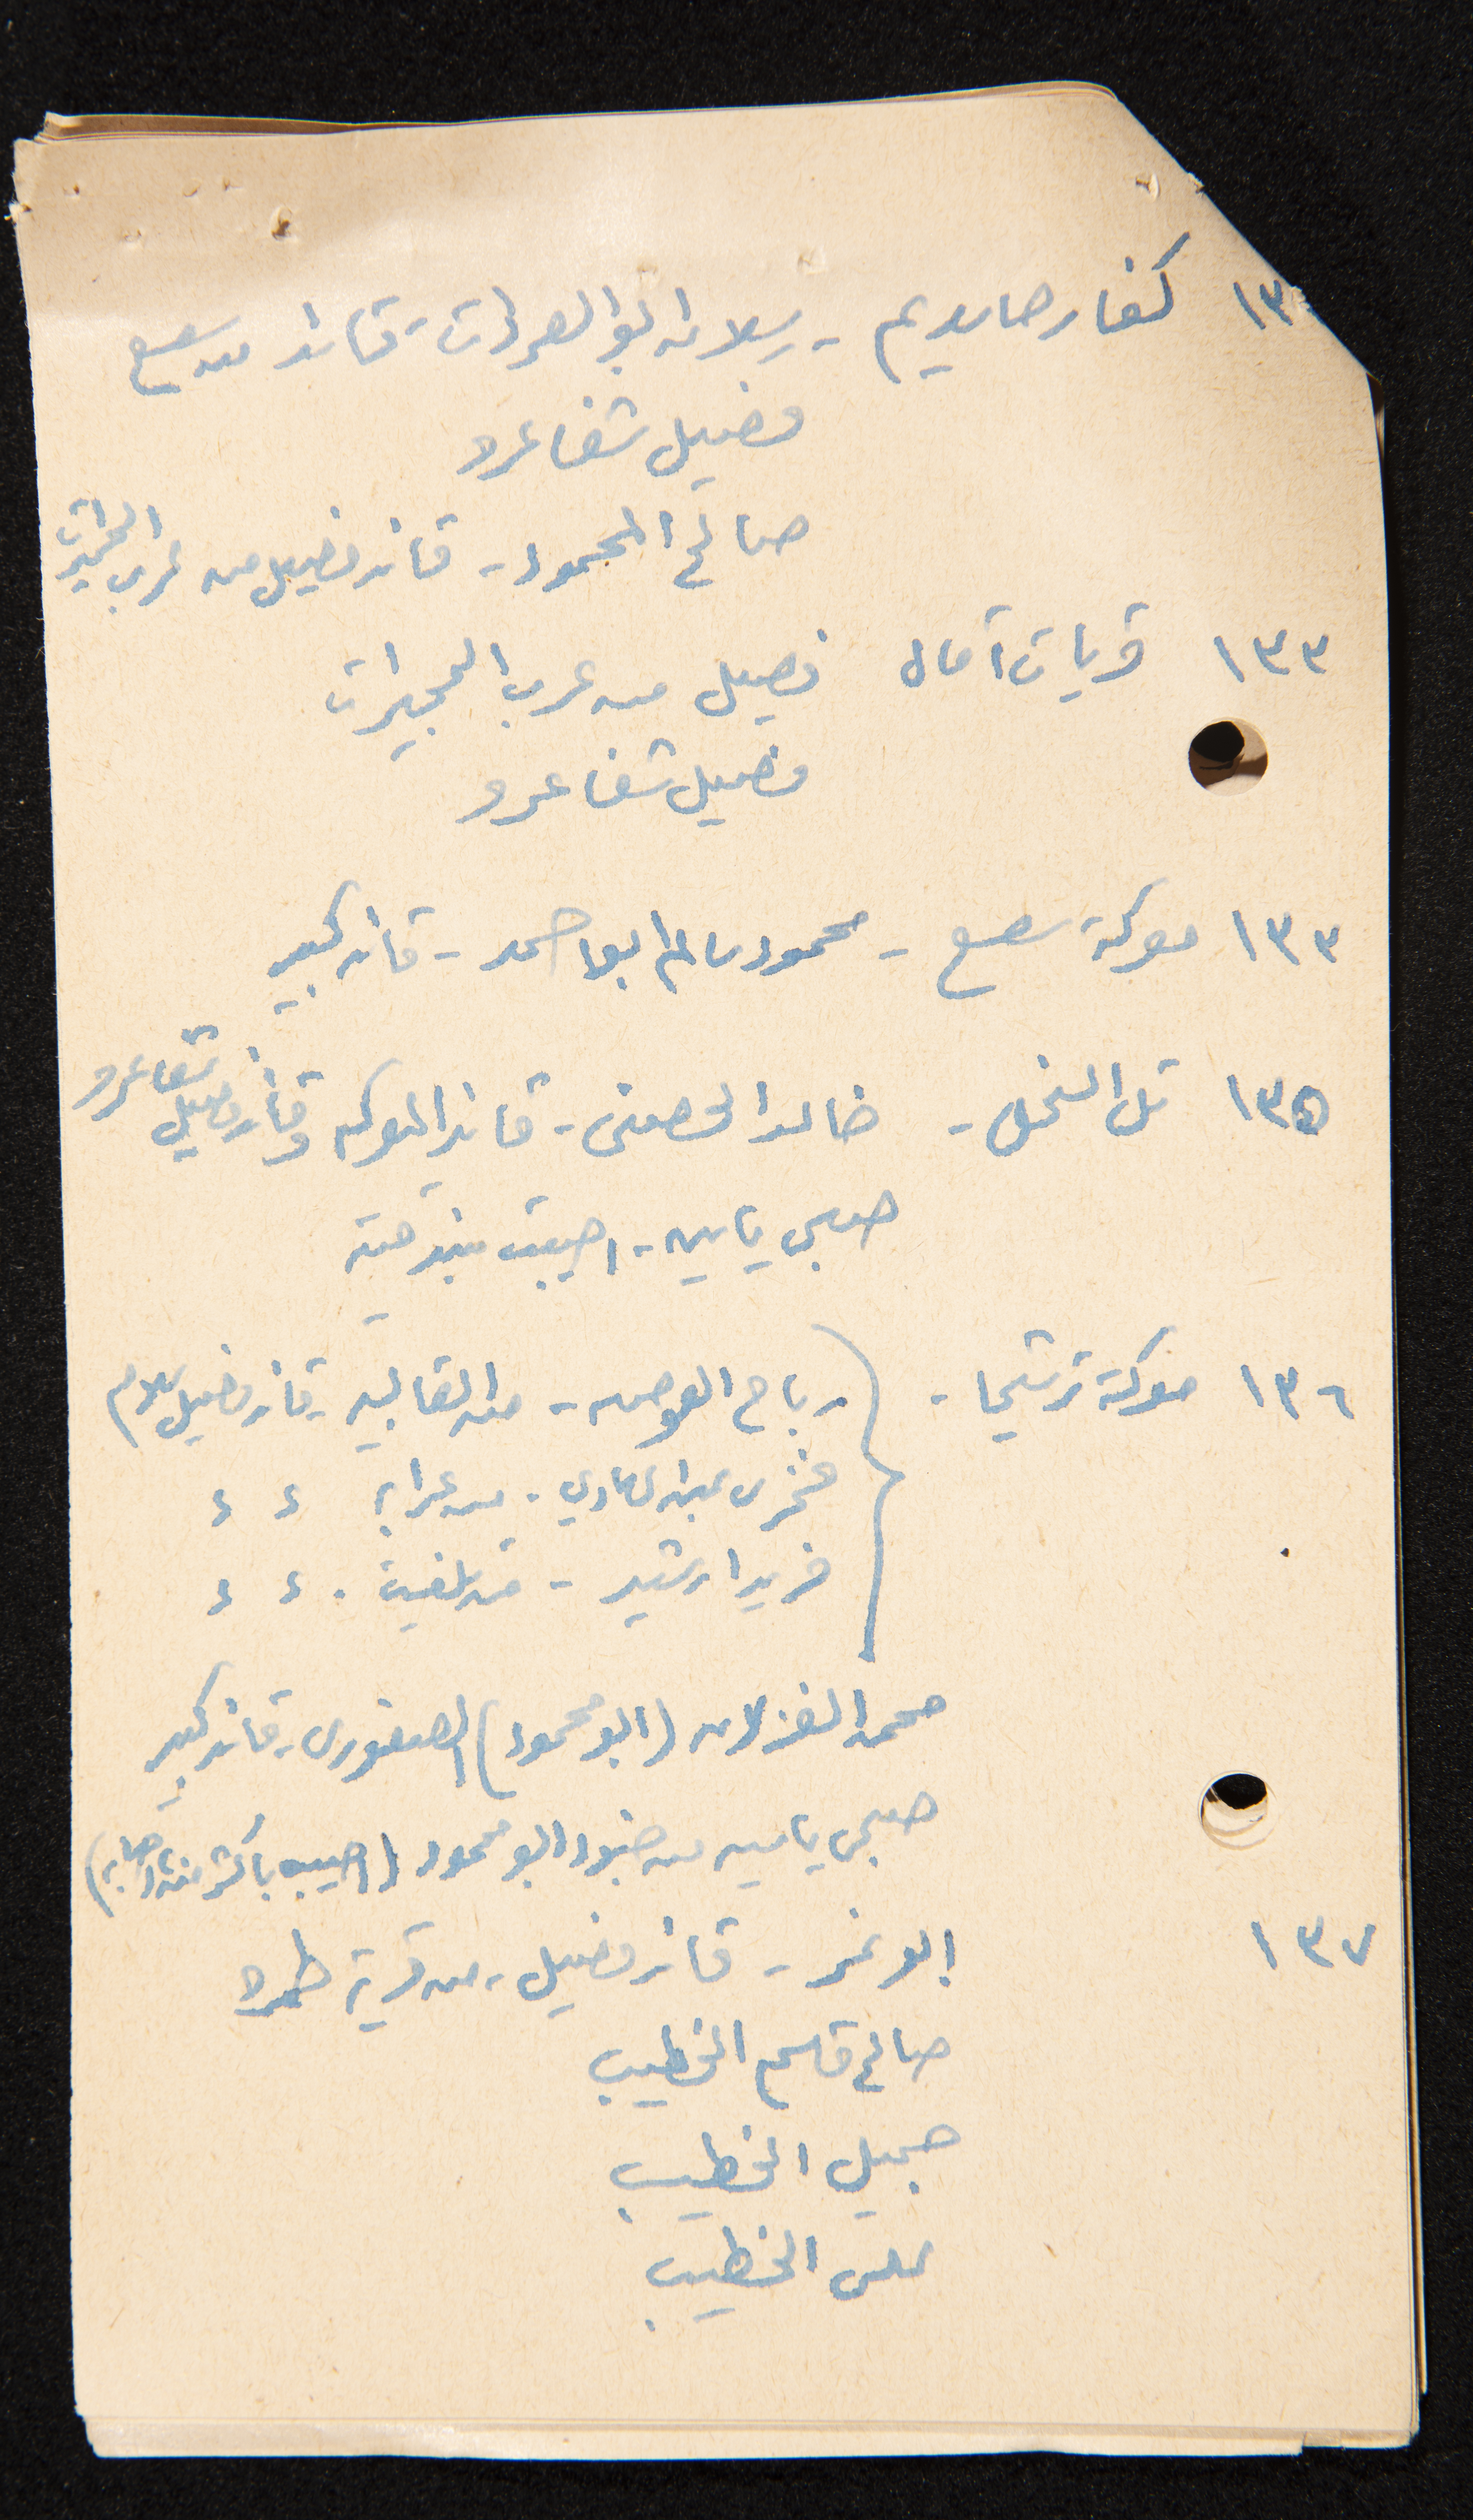 ١٣ كفار حاسديم - رسلان ابو الهردات - قائد من سعسع
فصيل شفا عمرو
صالح المحمود - قائد فصيل من عرب الحجيرات
١٣٣ قريات آمال فصيل من عرب الحجيرات
فصيل شفا عمرو
١٣٣ معركة سعسع - محمود سالم ابو احمد - قائد كبير
١٣٥ تل النحل - خالد الحصني - قائد المعركه وقائد فصيل شفا عمرو
صبحي ياسين - اصيبت بندقيته
١٣٦ معركة ترشيحا - رباح العوض - من الغابسيه - قائد فصيل سلام
فخري عبد الهادي - من عرابه ء ء
فريد ارشيد - من سلفيت . ء ء
محمد الغزلان (ابو محمود) الصفوري - قائد كبير
صبحي ياسين من جنود ابو محمود (اصيب باكثر من اصابه)
١٣٧ ابو نمر - قائد فصيل - من قرية طمره
صالح قاسم الخطيب
جميل الخطيب
علي الخطيب